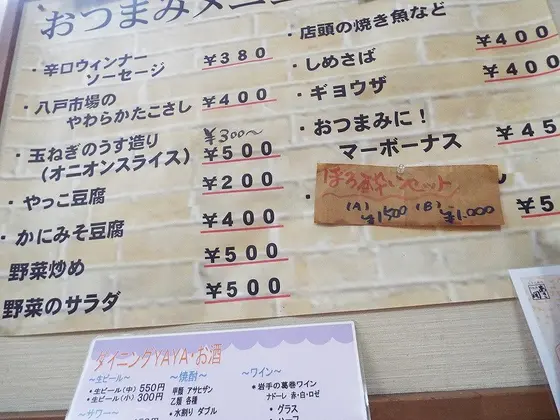 おつまみメニュ
・辛口ウィンナー
ソーセージ ¥380
・八戸市場の
やわらかたこさし ¥400
¥300～
・玉ねぎのうす造り
(オニオンスライス) ¥500
・やっこ豆腐 ¥200
・かにみそ豆腐 ¥400
野菜炒め ¥500
野菜のサラダ ¥500
・店頭の焼き魚など
・しめさば ¥400
・ギョウザ ¥400
・おつまみに！
マーボーナス ¥45
ほろ酔いセット
(A) ¥1500 (B) ¥1.000
¥5
ダイニングYAYA・お酒
～生ビール～
・生ビール(中) 550円
・生ビール(小) 300円
～サワー～
～焼酎～
甲類 アサヒザン
乙類 各種
・水割り ダブル
～ワイン～
・岩手の葛巻ワイン
ナドーレ 赤・白・ロゼ
・グラス